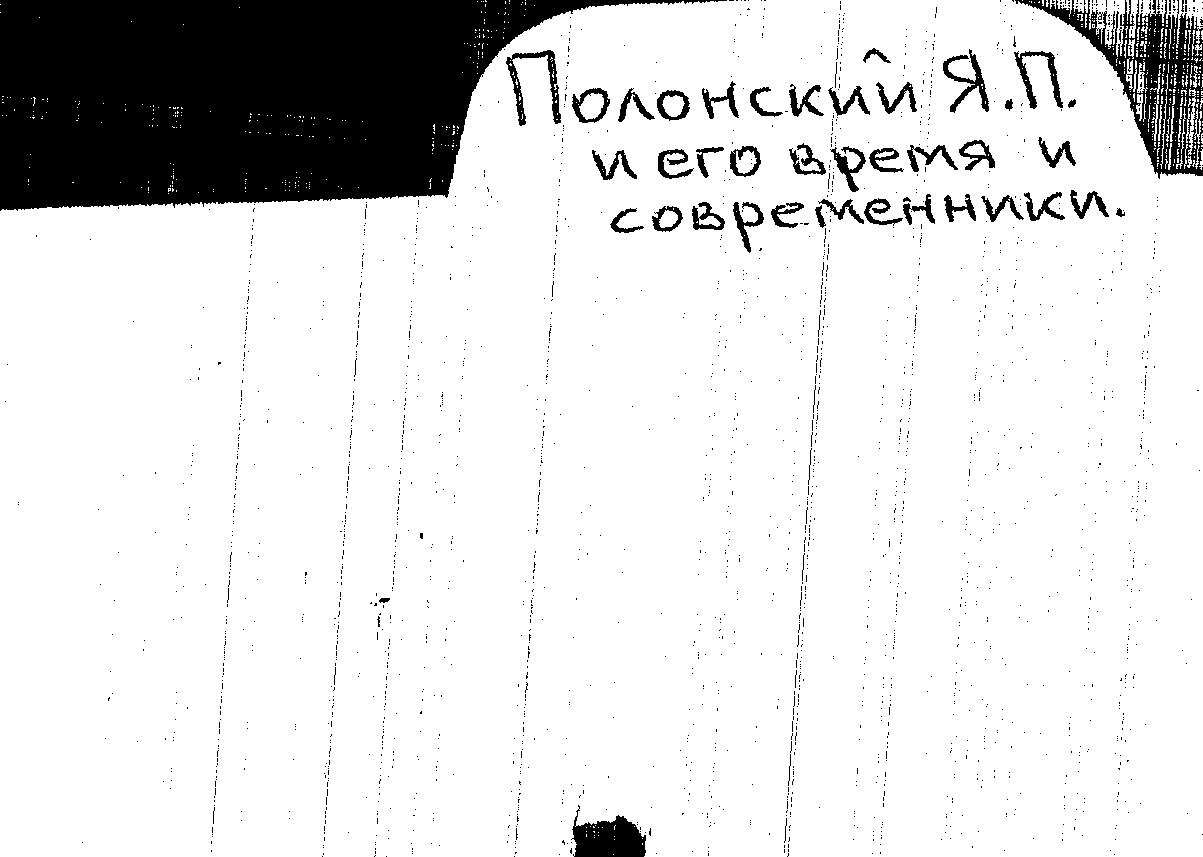 Полонский Я.П.
и его время и
современники.